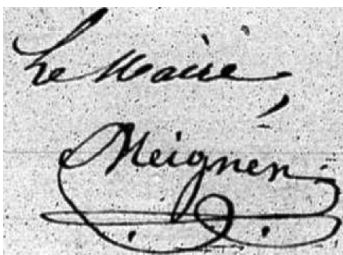 Le Maire,
Meignen